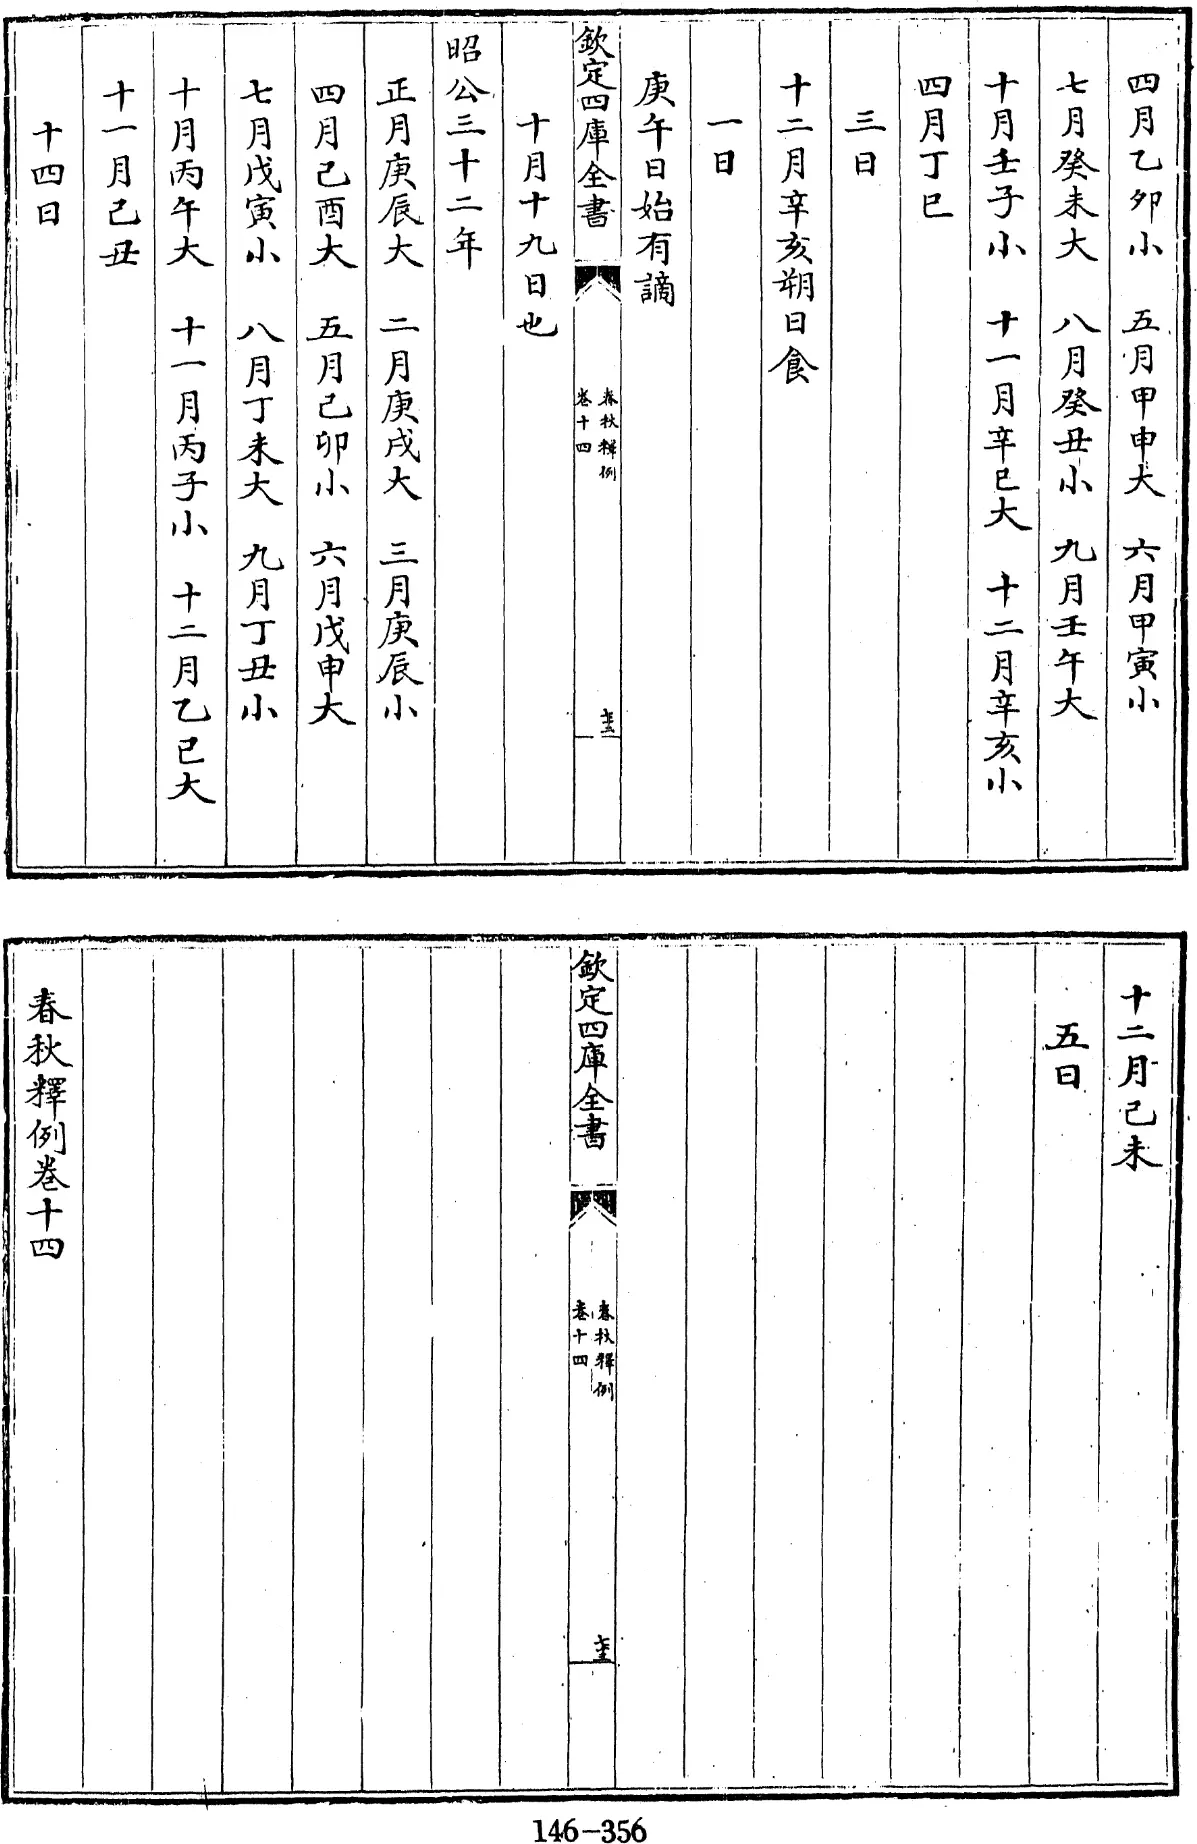 四月乙卯小　五月甲申大　六月甲寅小
七月癸未大　八月癸丑小　九月壬午大
十月壬子小　十一月辛巳大　十二月辛亥小
四月丁巳
三日
十二月辛亥朔日食
一日
庚午日始有謫
欽定四庫全書
春秋釋例
卷十四
十月十九日也
昭公三十二年
正月庚辰大　二月庚戌大　三月庚辰小
四月己酉大　五月己卯小　六月戊申大
七月戊寅小　八月丁未大　九月丁丑小
十月丙午大　十一月丙子小　十二月乙巳大
十一月己丑
十四日
十二月己未
五日
欽定四庫全書
春秋釋例
卷十四
春秋釋例卷十四
146-356